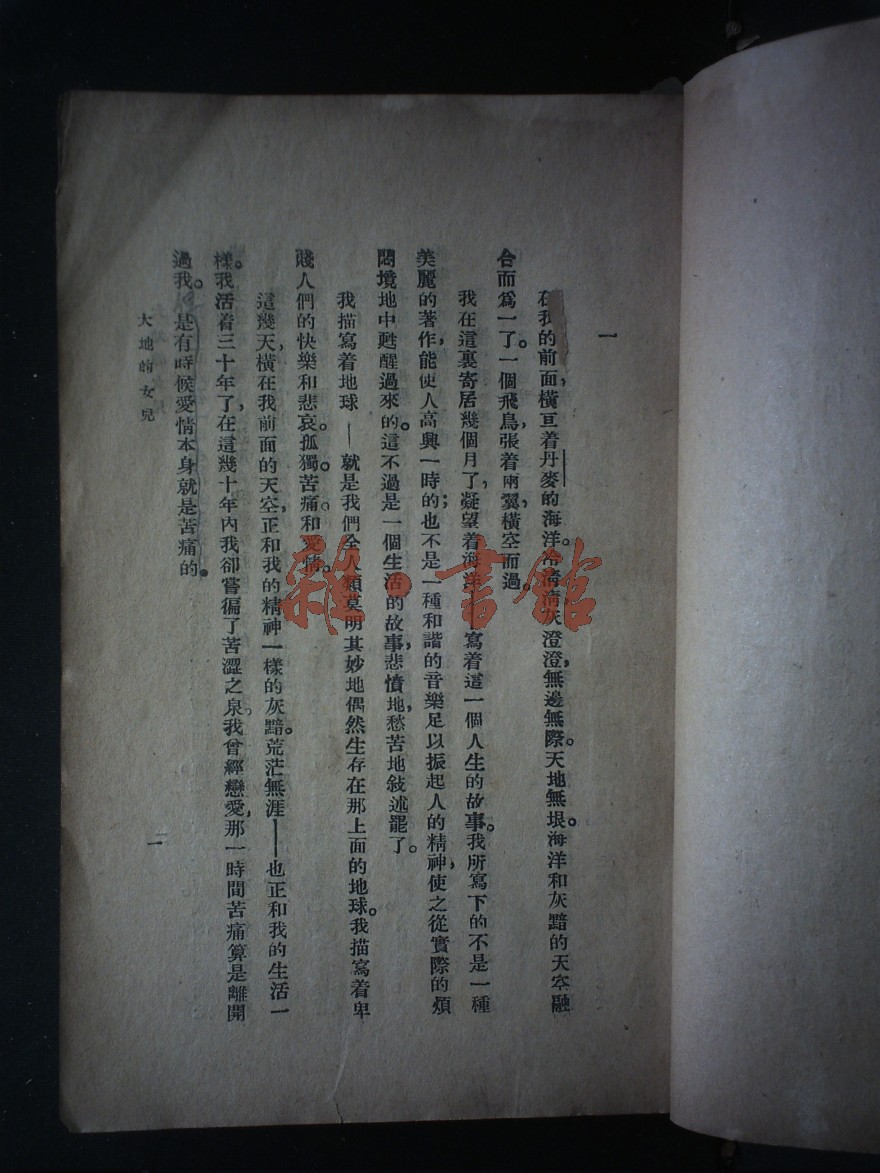 一
在我的前面，橫亘着丹麥的海洋。冷清清，灰澄澄，無邊無際。天地無垠。海洋和灰黯的天空融
合而爲一了。一個飛鳥，張着兩翼，橫空而過。
我在這裏寄居幾個月了，凝望着海洋——寫着這一個人生的故事。我所寫下的不是一種
美麗的著作，能使人高興一時的；也不是一種和諧的音樂足以振起人的精神，使之從實際的煩
悶境地中甦醒過來的。這不過是一個生活的故事，悲憤地，愁苦地敍述罷了。
我描寫着地球——就是我們全人類莫明其妙地偶然生存在那上面的地球。我描寫着卑
賤人們的快樂和悲哀。孤獨。苦痛。和愛情。
這幾天，橫在我前面的天空，正和我的精神一樣的灰黯。荒茫無涯——也正和我的生活一
樣。我活着三十年了，在這幾十年內我卻嘗徧了苦澀之泉。我曾經戀愛，那一時間苦痛算是離開
過我。是有時候愛情本身就是苦痛的。
大地的女兒
一
雜·書館